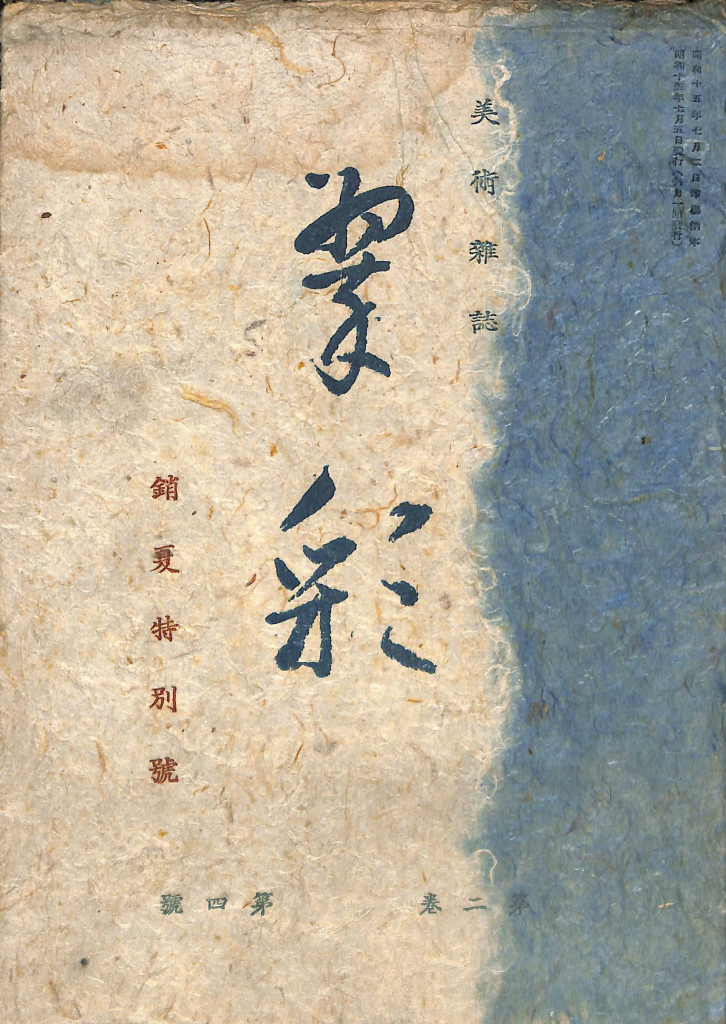 昭和十五年七月二日印刷納本
昭和十五年七月五日発行(毎月一回発行)
美術雜誌
翠彩
銷夏特別號
第二卷 第四號